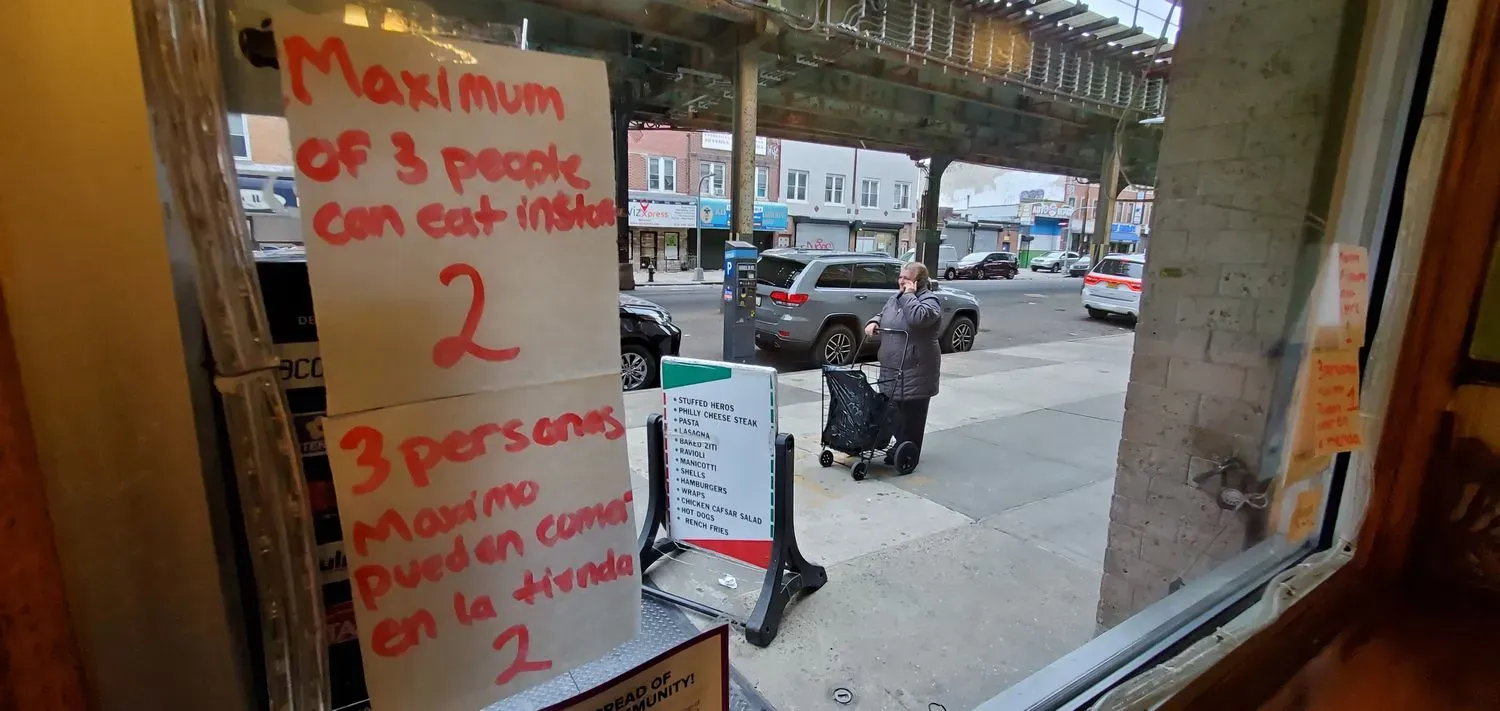 Maximum
of 3 people
can eat insto
2
3 personas
Maximo
pueden comer
en la tienda
2
• STUFFED HEROS
• PHILLY CHEESE STEAK
• PASTA
• LASAGNA
• BAKED ZITI
• RAVIOLI
• MANICOTTI
• SHELLS
• HAMBURGERS
• WRAPS
• CHICKEN CAESAR SALAD
• HOT DOGS
• RENCH FRIES
VIZXpress
P
AUTO
READ OF
MMUNITY!
3 personas
1